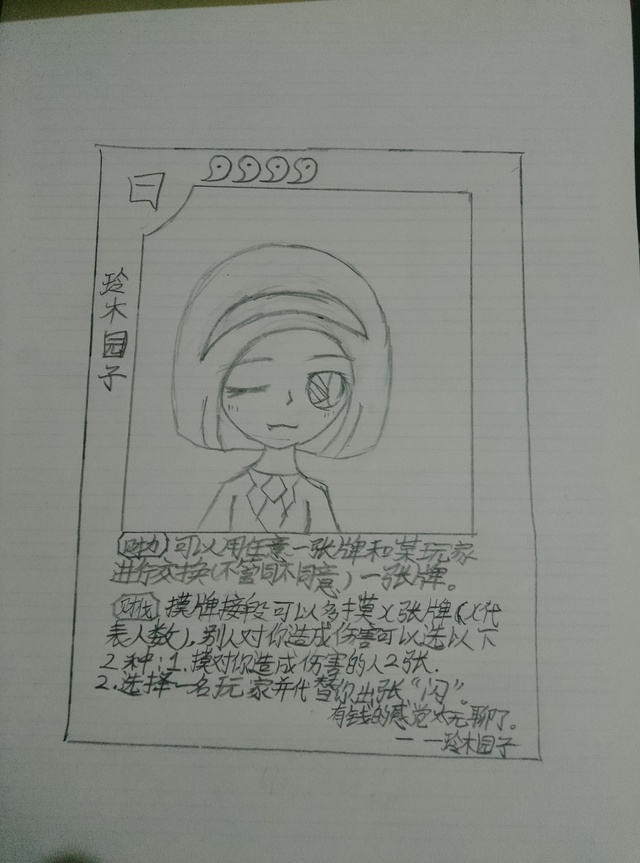 日
玲木园子
财力 可以用任意一张牌和某玩家
进行交换(不管同不同意)一张牌。
摸牌接段可以多摸X张牌(X代
表人数),别人对你造成伤害可以选以下
2种:1.摸对你造成伤害的人2张.
2.选择一名玩家并代替你出张“闪”。
有钱的感觉太无聊了。
——玲木园子